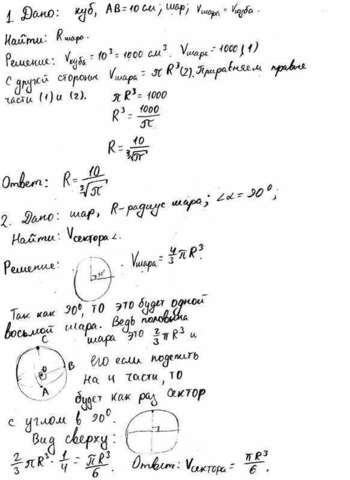 1. Дано: куб, AB = 10 см; шар; Vшара = Vкуба.
Найти: Rшара.
Решение: Vкуба = 10³ = 1000 см³. Vшара = 1000 (1)
С другой стороны Vшара = πR³(2). Приравняем правые
части (1) и (2). πR³ = 1000
R³ = 1000/π
R = 10/∛π
Ответ: R = 10/∛π
2. Дано: шар, R - радиус шара; ∠α = 90°;
Найти: Vсектора ∠.
Решение: Vшара = 4/3 πR³
Так как 90°, то это будет одной
восьмой шара. Ведь половина
шара это 2/3 πR³ и
C
B
A
его если поделить
на 4 части, то
будет как раз сектор
с углом в 90°.
Вид сверху:
2/3 πR³ · 1/4 = πR³/6. Ответ: Vсектора = πR³/6.